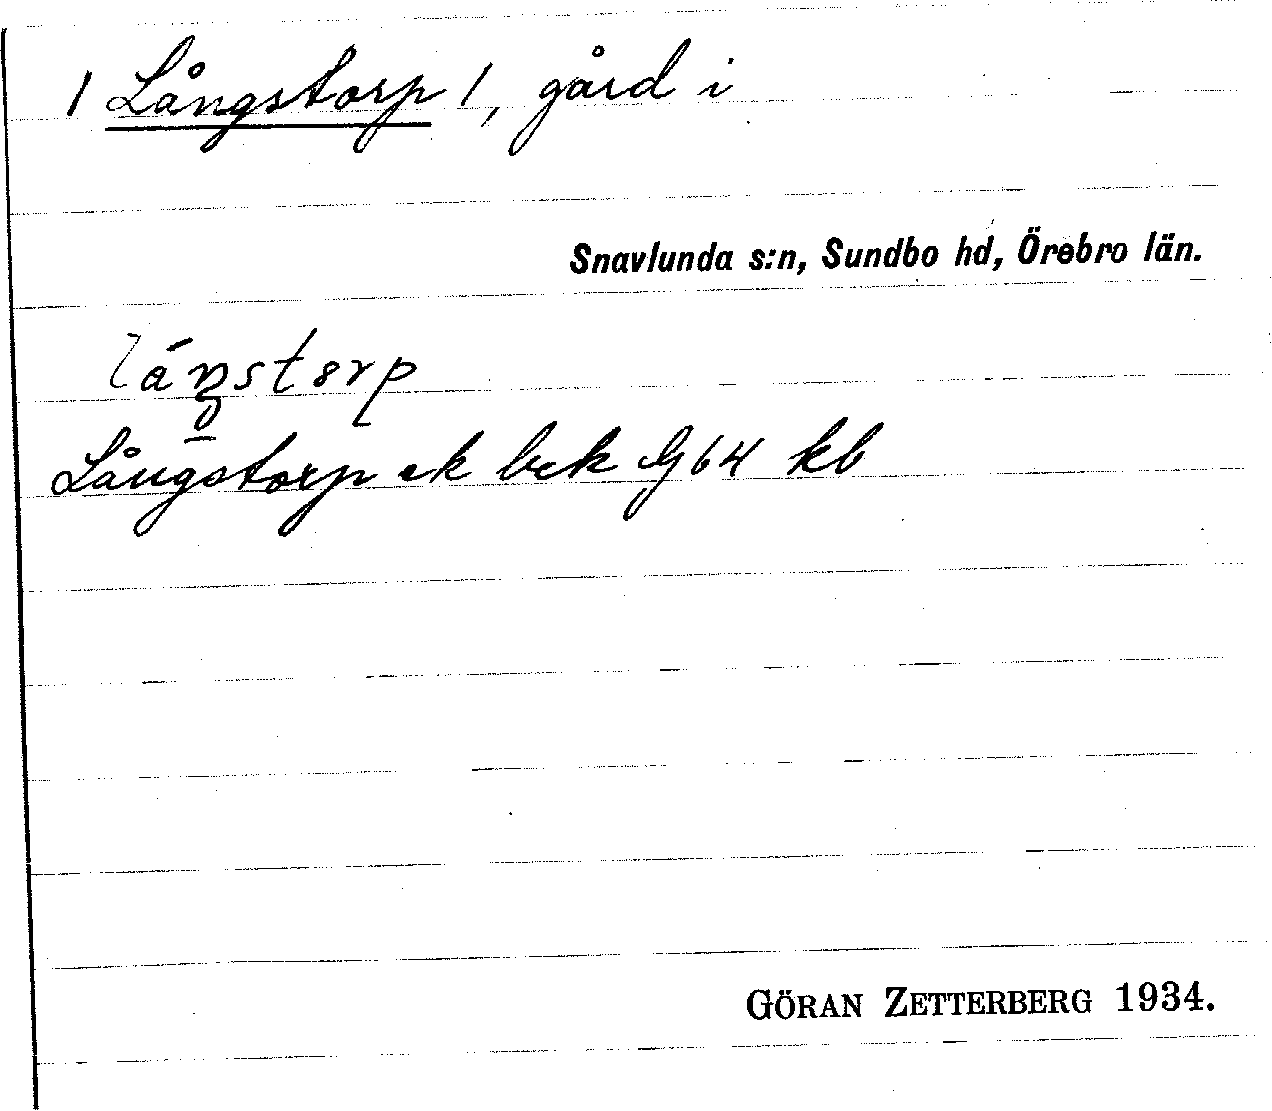 / Långstorp /, gård i
Snavlunda s:n, Sundbo hd, Örebro län.
Långstorp ek bek G64 kb
GÖRAN ZETTERBERG 1934.